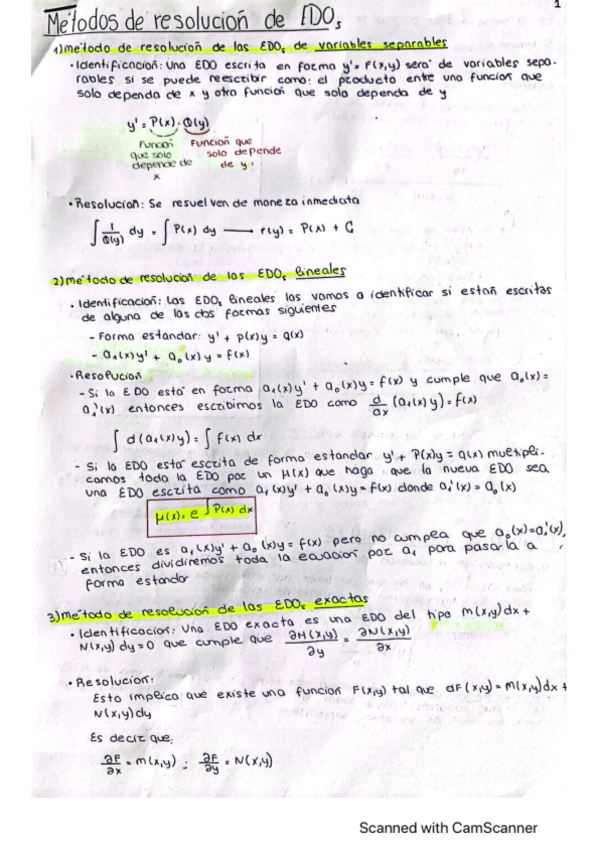 1
Métodos de resolución de EDOs
1) método de resolución de las EDOs de variables separables
• Identificación: Una EDO escrita en forma y' = F(x,y) será de variables sepa-
rables si se puede reescribir como: el producto entre una función que
solo dependa de x y otra función que solo dependa de y
y' = P(x) · Q(y)
Función que solo depende de x
Función que solo depende de y
• Resolución: Se resuelven de maneza inmediata
∫ 1/Q(y) dy = ∫ P(x) dy ⟶ r(y) = P(x) + C
2) método de resolución de las EDOs lineales
• Identificación: Las EDOs lineales las vamos a identificar si están escritas
de alguna de las dos formas siguientes
- Forma estandar: y' + p(x)y = q(x)
- a₁(x)y' + a₀(x)y = f(x)
• Resolución
- Si la EDO está en forma a₁(x)y' + a₀(x)y = f(x) y cumple que a₀(x) =
a₁'(x) entonces escribimos la EDO como d/dx (a₁(x)y) = f(x)
∫ d(a₁(x)y) = ∫ f(x) dx
- Si la EDO está escrita de forma estandar y' + P(x)y = q(x) multipli-
camos toda la EDO por un μ(x) que haga que la nueva EDO sea
una EDO escrita como a₁(x)y' + a₀(x)y = f(x) donde a₁'(x) = a₀(x)
μ(x) = e^∫P(x) dx
- Si la EDO es a₁(x)y' + a₀(x)y = f(x) pero no cumplea que a₀(x) = a₁'(x),
entonces dividiremos toda la ecuacion por a₁ para pasarla a
forma estandar
3) método de resolución de las EDOs exactas
• Identificacion: Una EDO exacta es una EDO del tipo M(x,y)dx +
N(x,y)dy = 0 que cumple que ∂M(x,y)/∂y = ∂N(x,y)/∂x
• Resolucion:
Esto implica que existe una funcion F(x,y) tal que dF(x,y) = M(x,y)dx +
N(x,y)dy
Es decir que:
∂F/∂x = M(x,y) ; ∂F/∂y = N(x,y)
Scanned with CamScanner